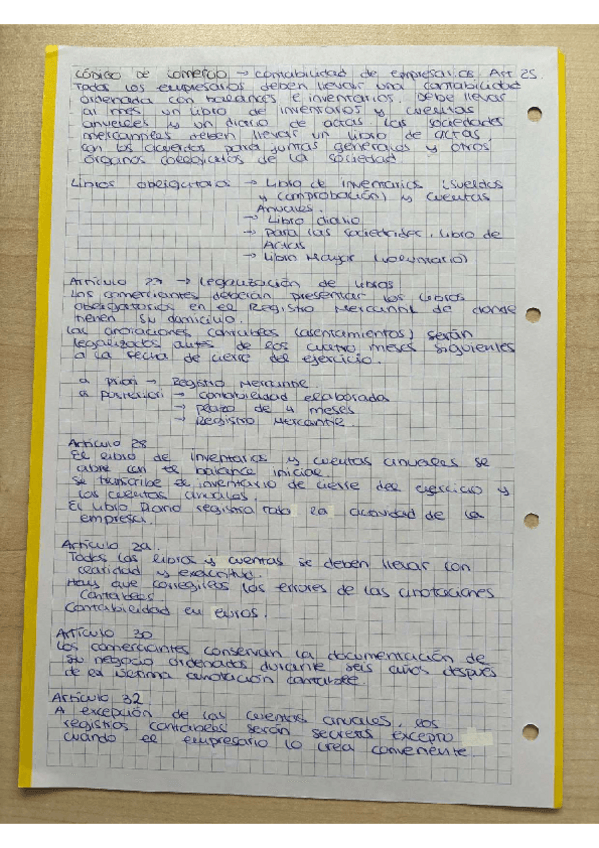 CÓDIGO DE COMERCIO → contabilidad de empresarios Art 25.
Todos los empresarios deben llevar una contabilidad
ordenada con balances e inventarios. Debe llevar
al mes un libro de inventarios y cuentas
anuales y un diario de actas las sociedades
mercantiles deben llevar un libro de actas
con los acuerdos para juntas generales y otros
órganos colegiados de la sociedad
Libros obligatorios → Libro de inventarios (sueldos
y comprobación) y cuentas
Anuales.
→ Libro diario
→ para las sociedades, libro de
Actas
→ Libro Mayor (voluntario)
Artículo 27 → Legalización de libros
Los comerciantes deberán presentar los libros
obligatorios en el Registro Mercantil de donde
tienen su domicilio.
Las anotaciones contables (asentamientos) serán
legalizados antes de los cuatro meses siguientes
a la fecha de cierre del ejercicio.
a priori → Registro Mercantil
a posteriori → contabilidad elaborada
→ plazo de 4 meses
→ Registro Mercantil.
Artículo 28
El libro de inventarios y cuentas anuales se
abre con el balance inicial
Se transcribe el inventario de cierre del ejercicio y
las cuentas anuales.
El libro Diario registra toda la actividad de la
empresa.
Artículo 29.
Todos los libros y cuentas se deben llevar con
claridad y exactitud.
Hay que corregir los errores de las anotaciones
contables
Contabilidad en euros.
Artículo 30
Los comerciantes conservan la documentación de
su negocio ordenados durante seis años después
de la última anotación contable.
Artículo 32
A excepción de las cuentas anuales, los
registros contables serán secretos excepto
cuando el empresario lo crea conveniente.